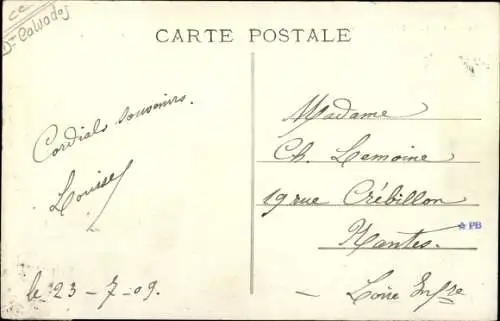 cc
Dt Calvados
CARTE POSTALE
Cordials souvenirs.
Louise
le 23-7-09.
Madame
Ch. Lemoine
19 rue Crébillon
Nantes.
☆ PB
- Loire Infre